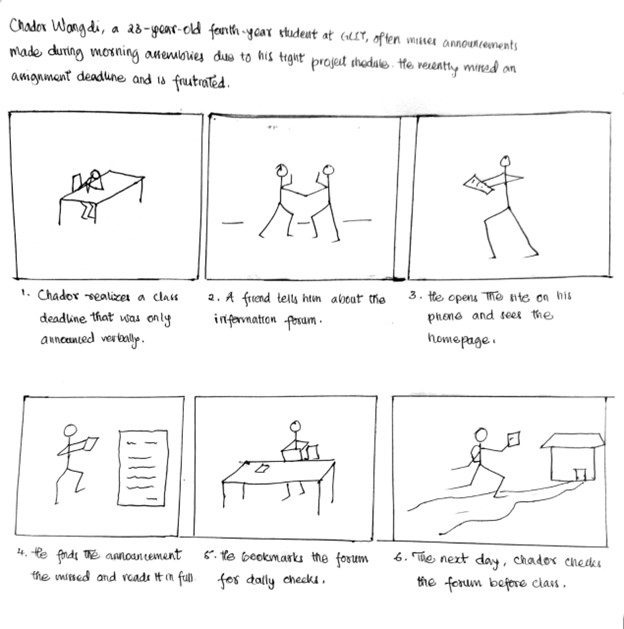 Chador Wangdi, a 23-year-old fourth-year student at GCIT, often misses announcements
made during morning assemblies due to his tight project shedule. He recently missed an
assignment deadline and is frustrated.
1. Chador realizes a class
deadline that was only
announced verbally.
2. A friend tells him about the
information forum.
3. He opens the site on his
phone and sees the
homepage.
4. He finds the announcement
the missed and reads it in full.
5. He bookmarks the forum
for daily checks.
6. The next day, chador checks
the forum before class.